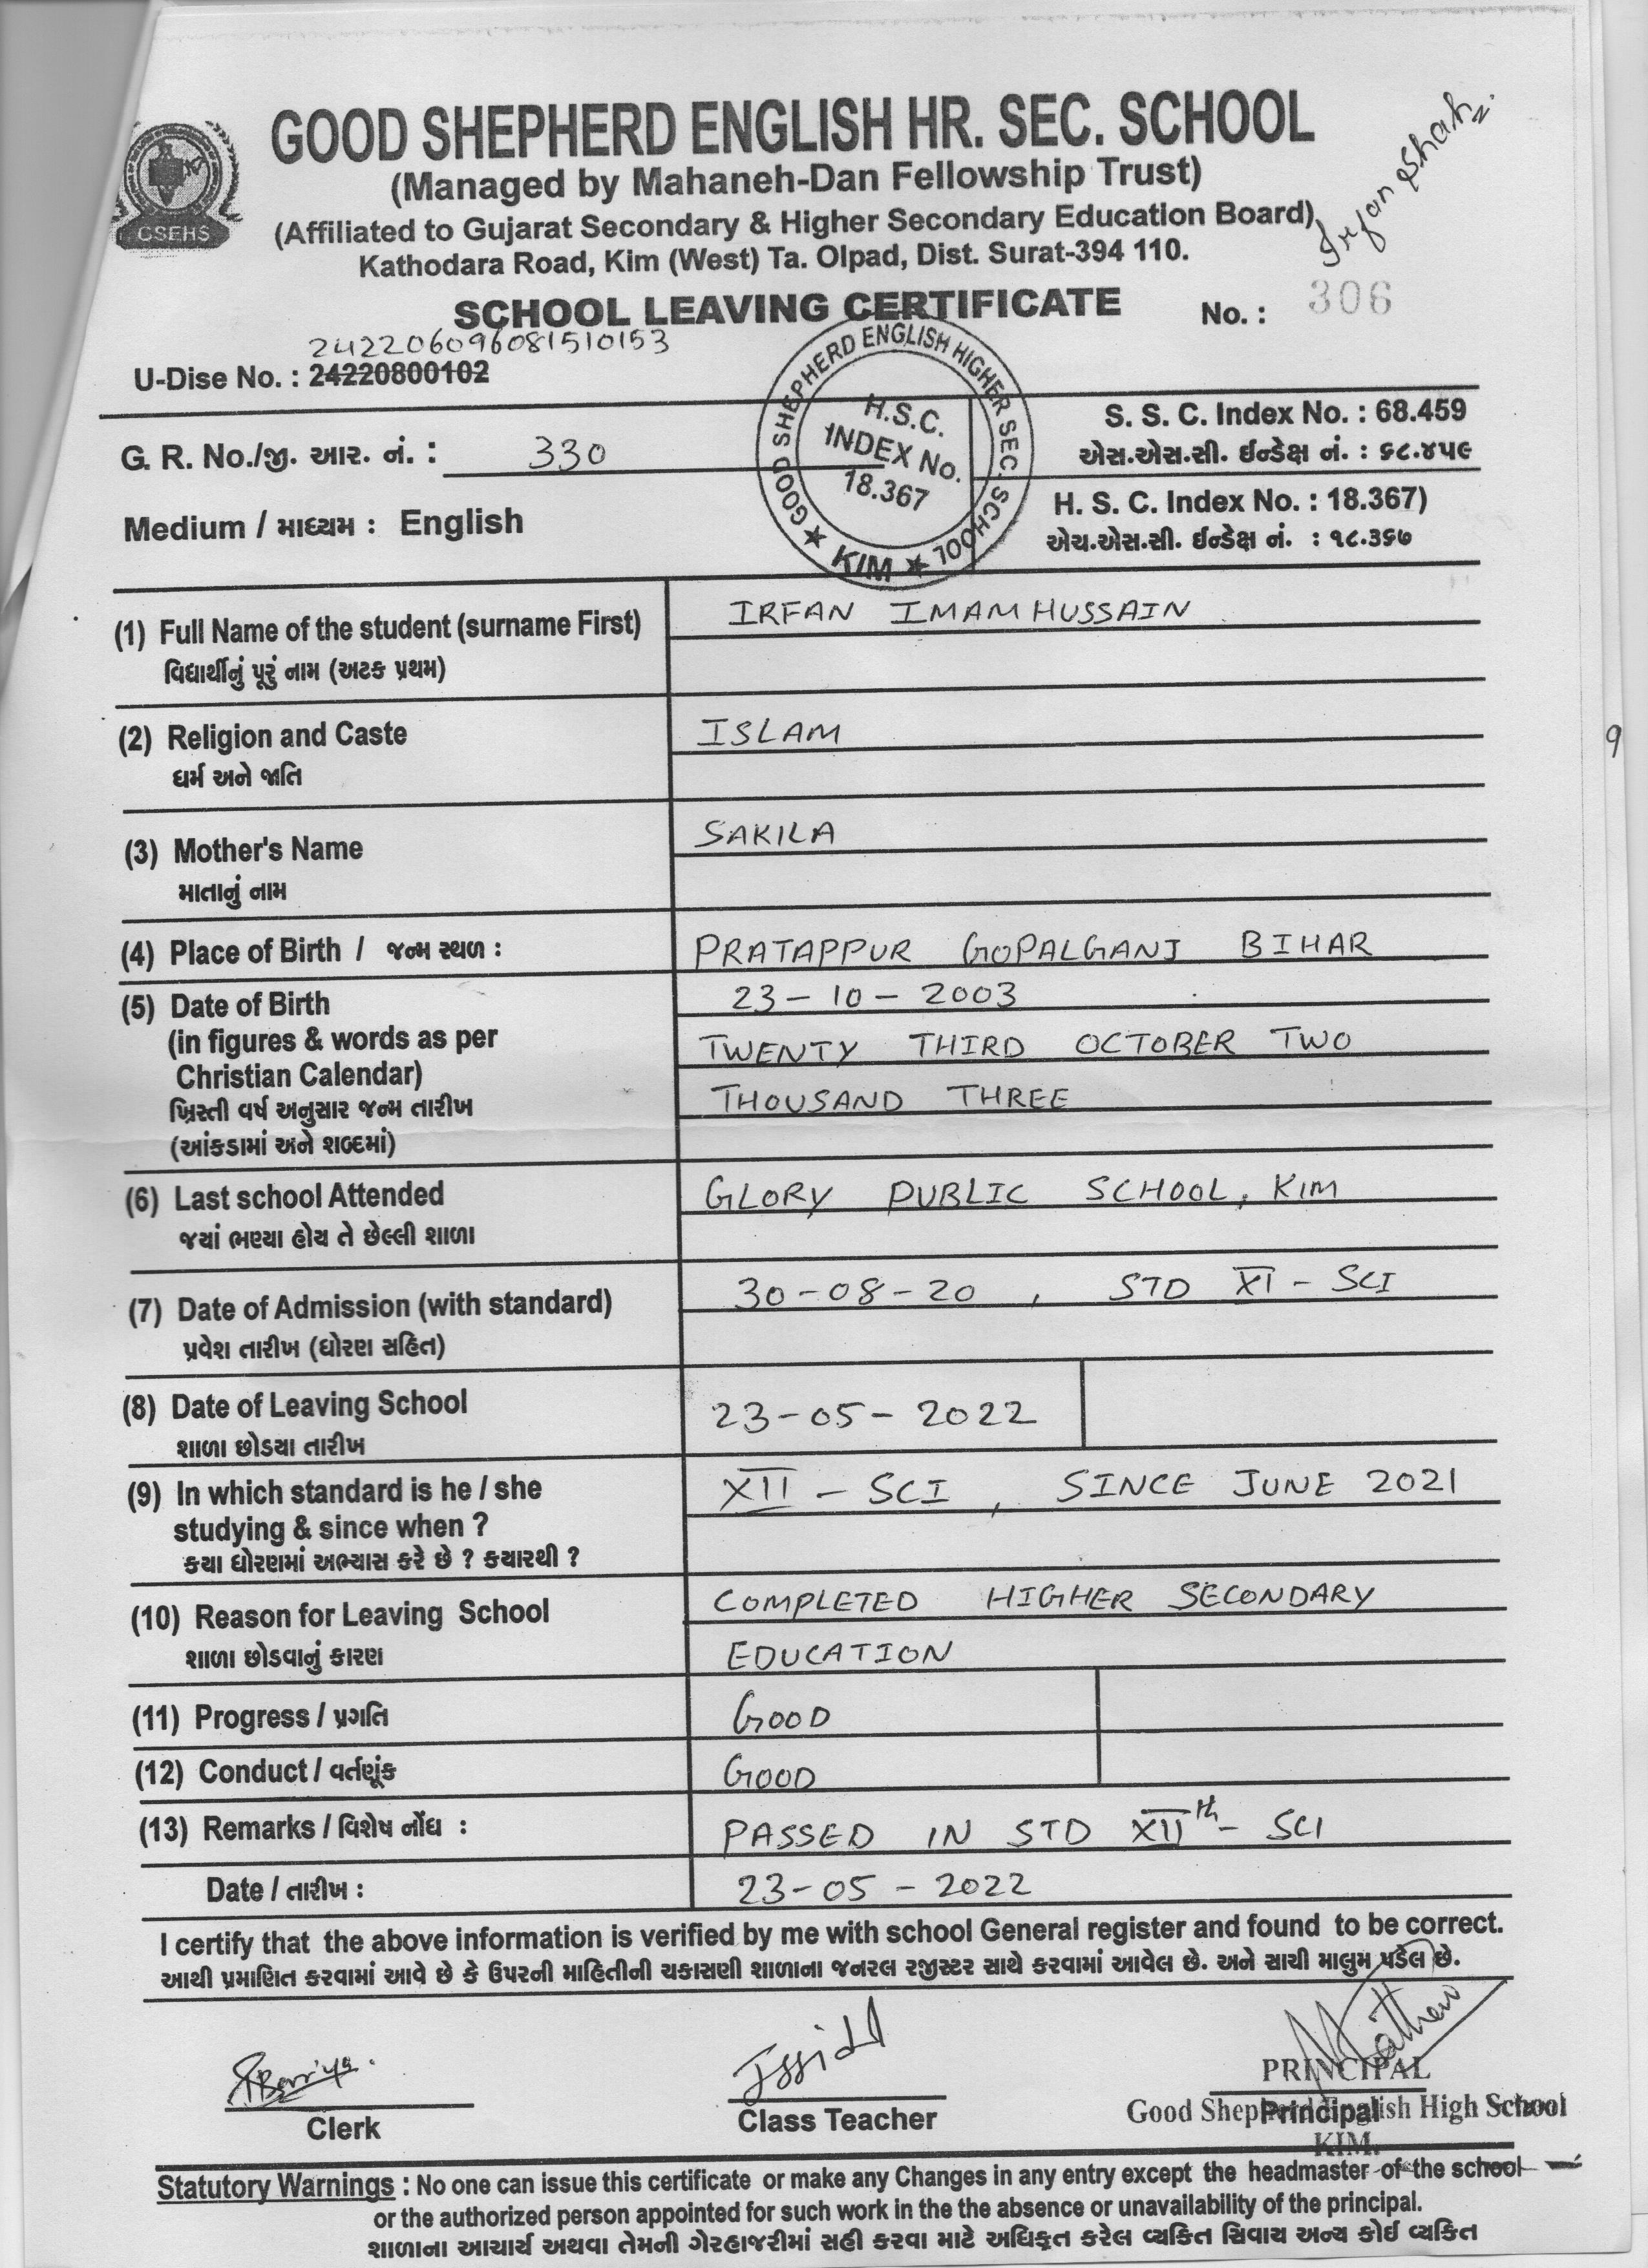 GOOD SHEPHERD ENGLISH HR. SEC. SCHOOL
(Managed by Mahaneh-Dan Fellowship Trust)
(Affiliated to Gujarat Secondary & Higher Secondary Education Board)
Kathodara Road, Kim (West) Ta. Olpad, Dist. Surat-394 110.
GSEHS
Irfan Shah
SCHOOL LEAVING CERTIFICATE No. : 306
242206096081510153
U-Dise No. : 24220800102
GOOD SHEPHERD ENGLISH HIGHER SEC. SCHOOL ★ KIM ★
H.S.C.
INDEX No.
18.367
G. R. No./જી. આર. નં. : 330
Medium / માધ્યમ : English
S. S. C. Index No. : 68.459
એસ.એસ.સી. ઈન્ડેક્ષ નં. : ૬૮.૪૫૯
H. S. C. Index No. : 18.367)
એચ.એસ.સી. ઈન્ડેક્ષ નં. : ૧૮.૩૬૭
(1) Full Name of the student (surname First) IRFAN IMAMHUSSAIN
વિદ્યાર્થીનું પૂરું નામ (અટક પ્રથમ)
(2) Religion and Caste ISLAM
ધર્મ અને જાતિ
9
(3) Mother's Name SAKILA
માતાનું નામ
(4) Place of Birth / જન્મ સ્થળ : PRATAPPUR GOPALGANJ BIHAR
(5) Date of Birth 23-10-2003
(in figures & words as per TWENTY THIRD OCTOBER TWO
Christian Calendar) THOUSAND THREE
ખ્રિસ્તી વર્ષ અનુસાર જન્મ તારીખ
(આંકડામાં અને શબ્દમાં)
(6) Last school Attended GLORY PUBLIC SCHOOL, KIM
જયાં ભણ્યા હોય તે છેલ્લી શાળા
(7) Date of Admission (with standard) 30-08-20 , STD XI - SCI
પ્રવેશ તારીખ (ધોરણ સહિત)
(8) Date of Leaving School 23-05-2022
શાળા છોડયા તારીખ
(9) In which standard is he / she XII - SCI , SINCE JUNE 2021
studying & since when ?
કયા ધોરણમાં અભ્યાસ કરે છે ? કયારથી ?
(10) Reason for Leaving School COMPLETED HIGHER SECONDARY
શાળા છોડવાનું કારણ EDUCATION
(11) Progress / પ્રગતિ GOOD
(12) Conduct / વર્તણૂંક GOOD
(13) Remarks / વિશેષ નોંધ : PASSED IN STD XIIth - SCI
Date / તારીખ : 23-05-2022
I certify that the above information is verified by me with school General register and found to be correct.
આથી પ્રમાણિત કરવામાં આવે છે કે ઉપરની માહિતીની ચકાસણી શાળાના જનરલ રજીસ્ટર સાથે કરવામાં આવેલ છે. અને સાચી માલુમ પડેલ છે.
Mathew
PRINCIPAL
Good Shepherd English High School
KIM.
Clerk Class Teacher Principal
Statutory Warnings : No one can issue this certificate or make any Changes in any entry except the headmaster of the school
or the authorized person appointed for such work in the the absence or unavailability of the principal.
શાળાના આચાર્ય અથવા તેમની ગેરહાજરીમાં સહી કરવા માટે અધિકૃત કરેલ વ્યકિત સિવાય અન્ય કોઈ વ્યકિત